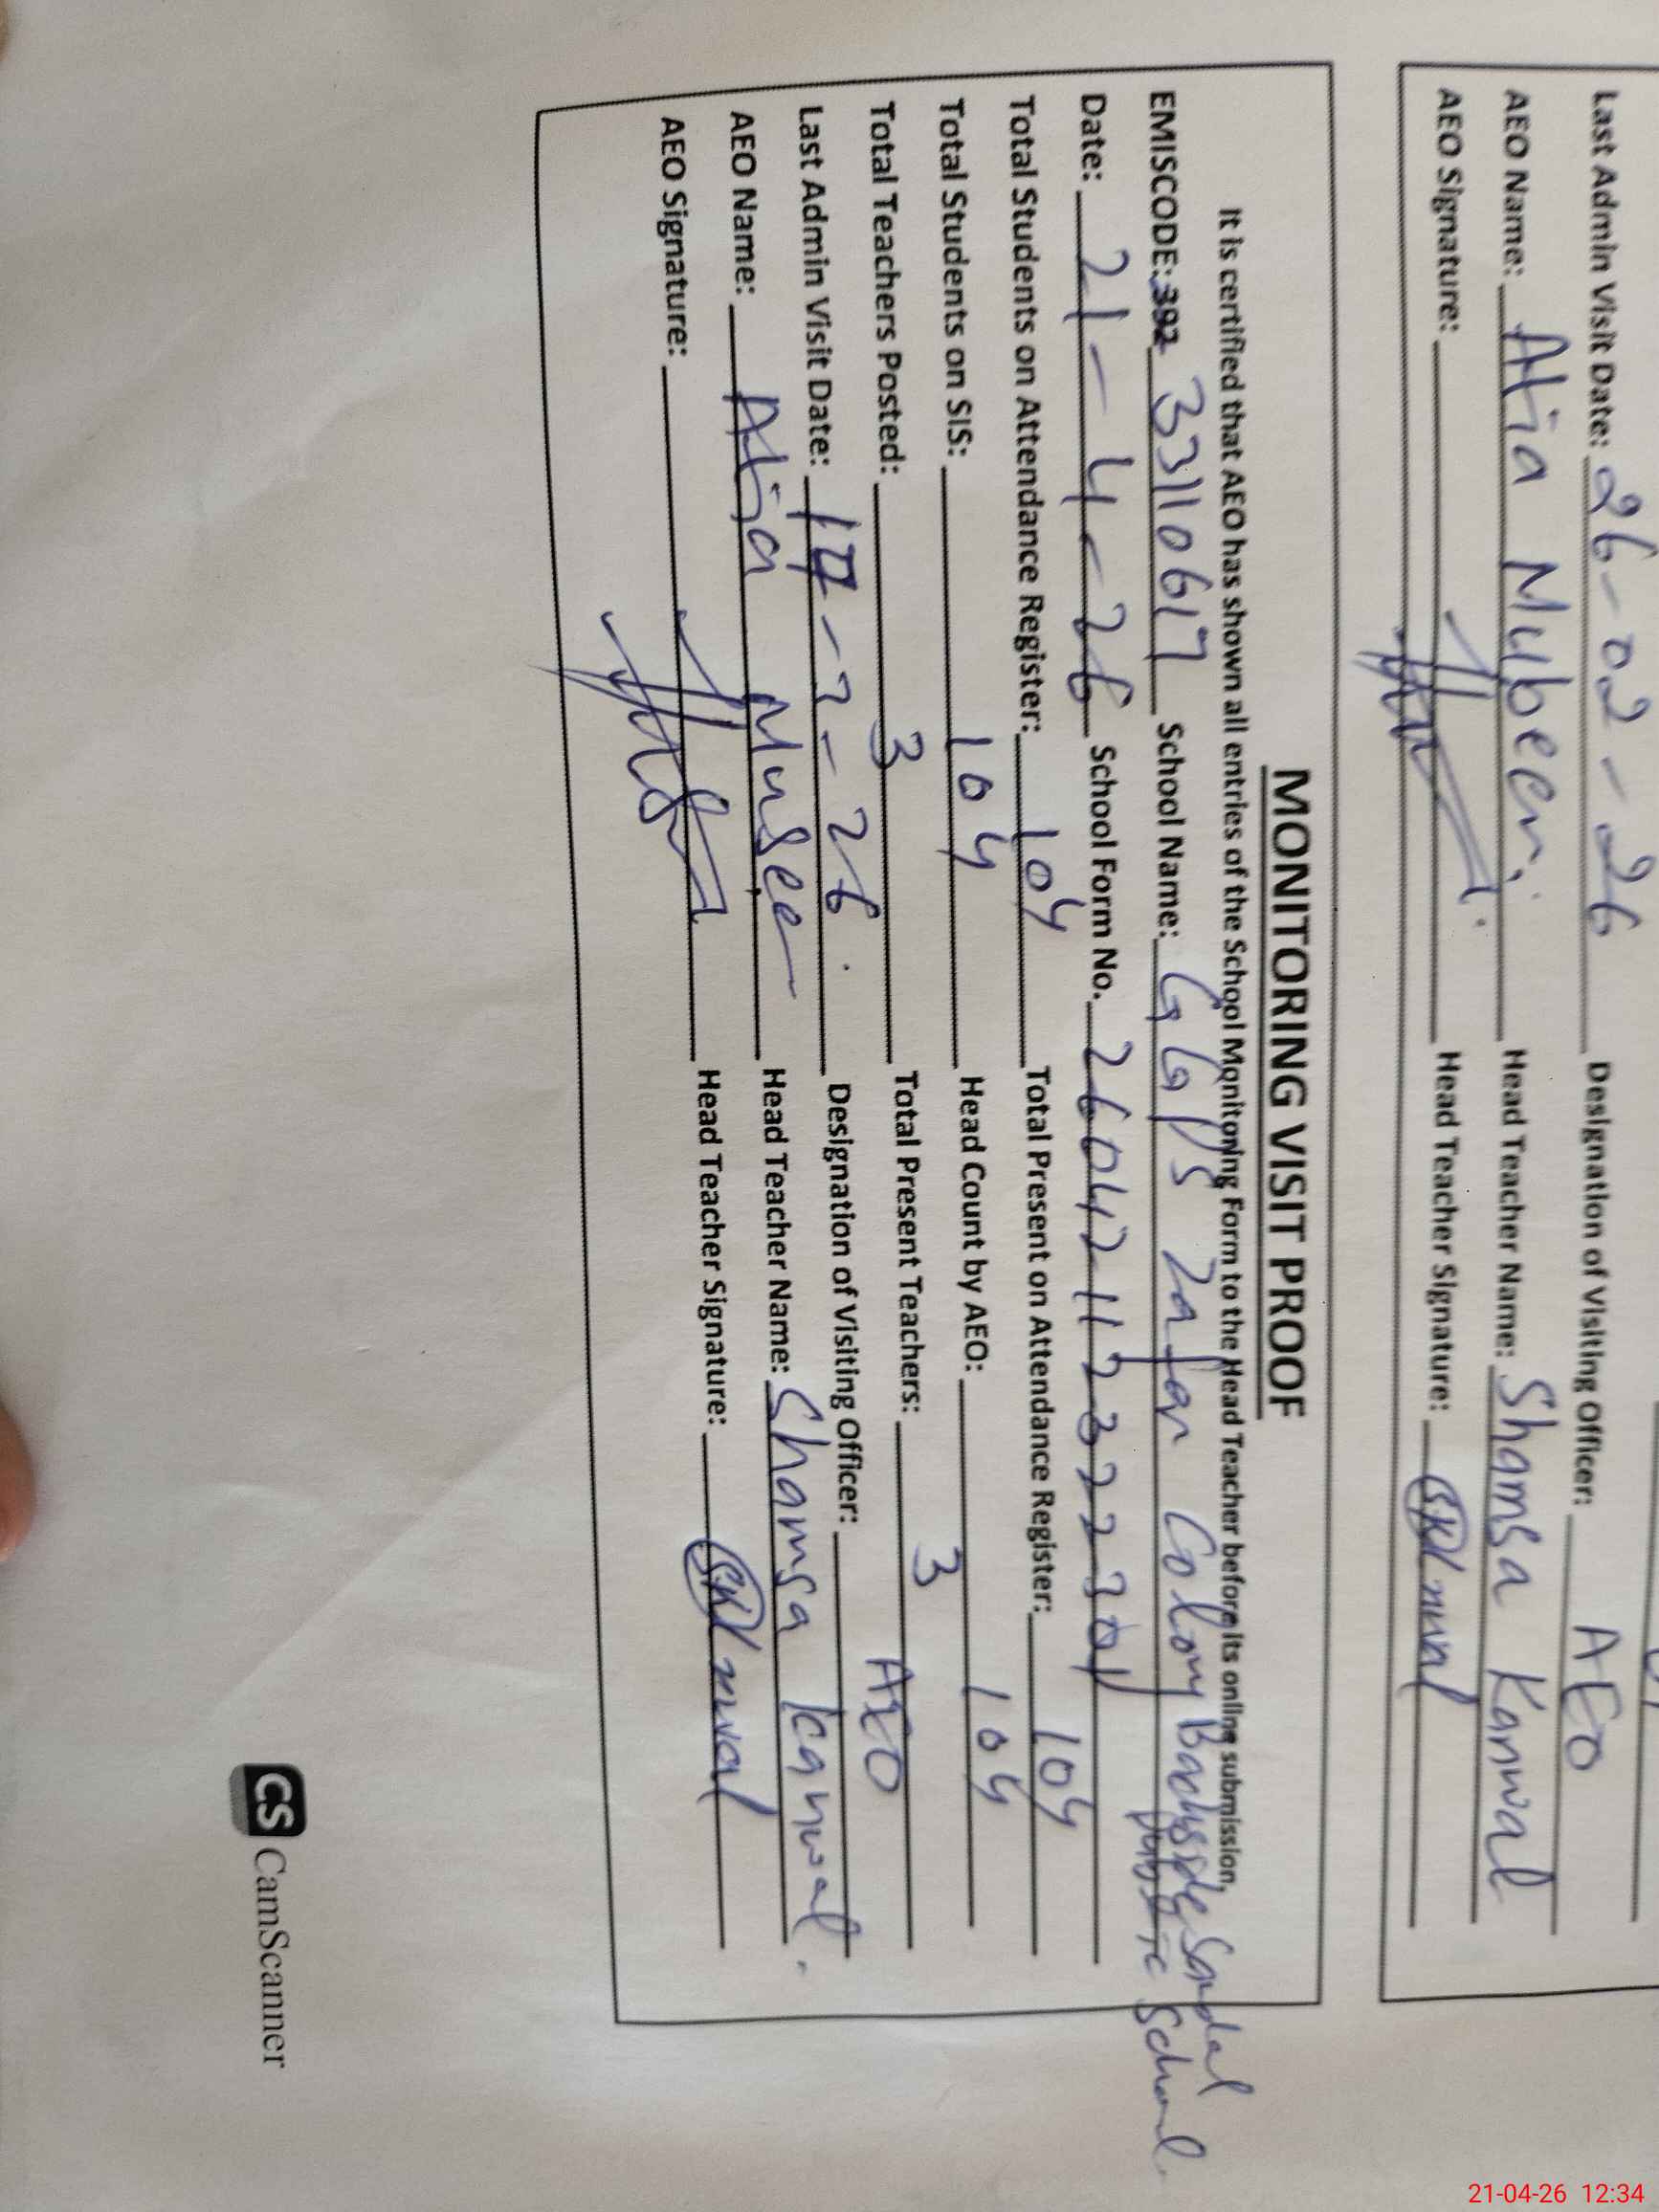 Last Admin Visit Date: 26-02-26 Designation of Visiting Officer: AEO
AEO Name: Atia Mubeen Head Teacher Name: Shamsa Kanwal
AEO Signature: Head Teacher Signature:
MONITORING VISIT PROOF
It is certified that AEO has shown all entries of the School Monitoring Form to the Head Teacher before its online submission,
EMISCODE: 392 33110617 School Name: GGPS Zafar Colony Backside Sandal
School
Date: 21-4-26 School Form No. 26042112322301
Total Students on Attendance Register: 104 Total Present on Attendance Register: 104
Total Students on SIS: 104 Head Count by AEO: 104
Total Teachers Posted: 3 Total Present Teachers: 3
Last Admin Visit Date: Designation of Visiting Officer: AEO
AEO Name: Atia Head Teacher Name: Shamsa Kanwal.
AEO Signature: Head Teacher Signature:
CS CamScanner
21-04-26 12:34